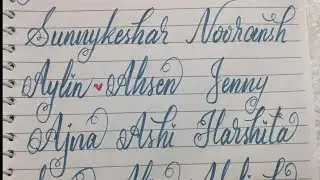 Sunnykeshar Nooransh
Aylin ❤ Ahsen Jenny
Ajra Ashi Harshita